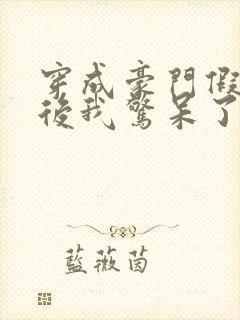 穿成豪門假
後我驚呆了
藍薇茵